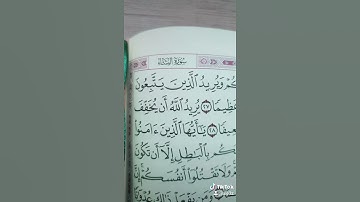 سُورَةُ النِّسَاءِ
كُمْ وَيُرِيدُ ٱلَّذِينَ يَتَّبِعُونَ
عَظِيمًا ٢٧ يُرِيدُ ٱللَّهُ أَن يُخَفِّفَ
ضَعِيفًا ٢٨ يَٰٓأَيُّهَا ٱلَّذِينَ ءَامَنُوا۟
كُم بِٱلْبَٰطِلِ إِلَّآ أَن تَكُونَ
وَلَا تَقْتُلُوٓا۟ أَنفُسَكُمْ إِنَّ
وَمَن يَفْعَلْ ذَٰلِكَ عُدْوَٰنًا
TikTok